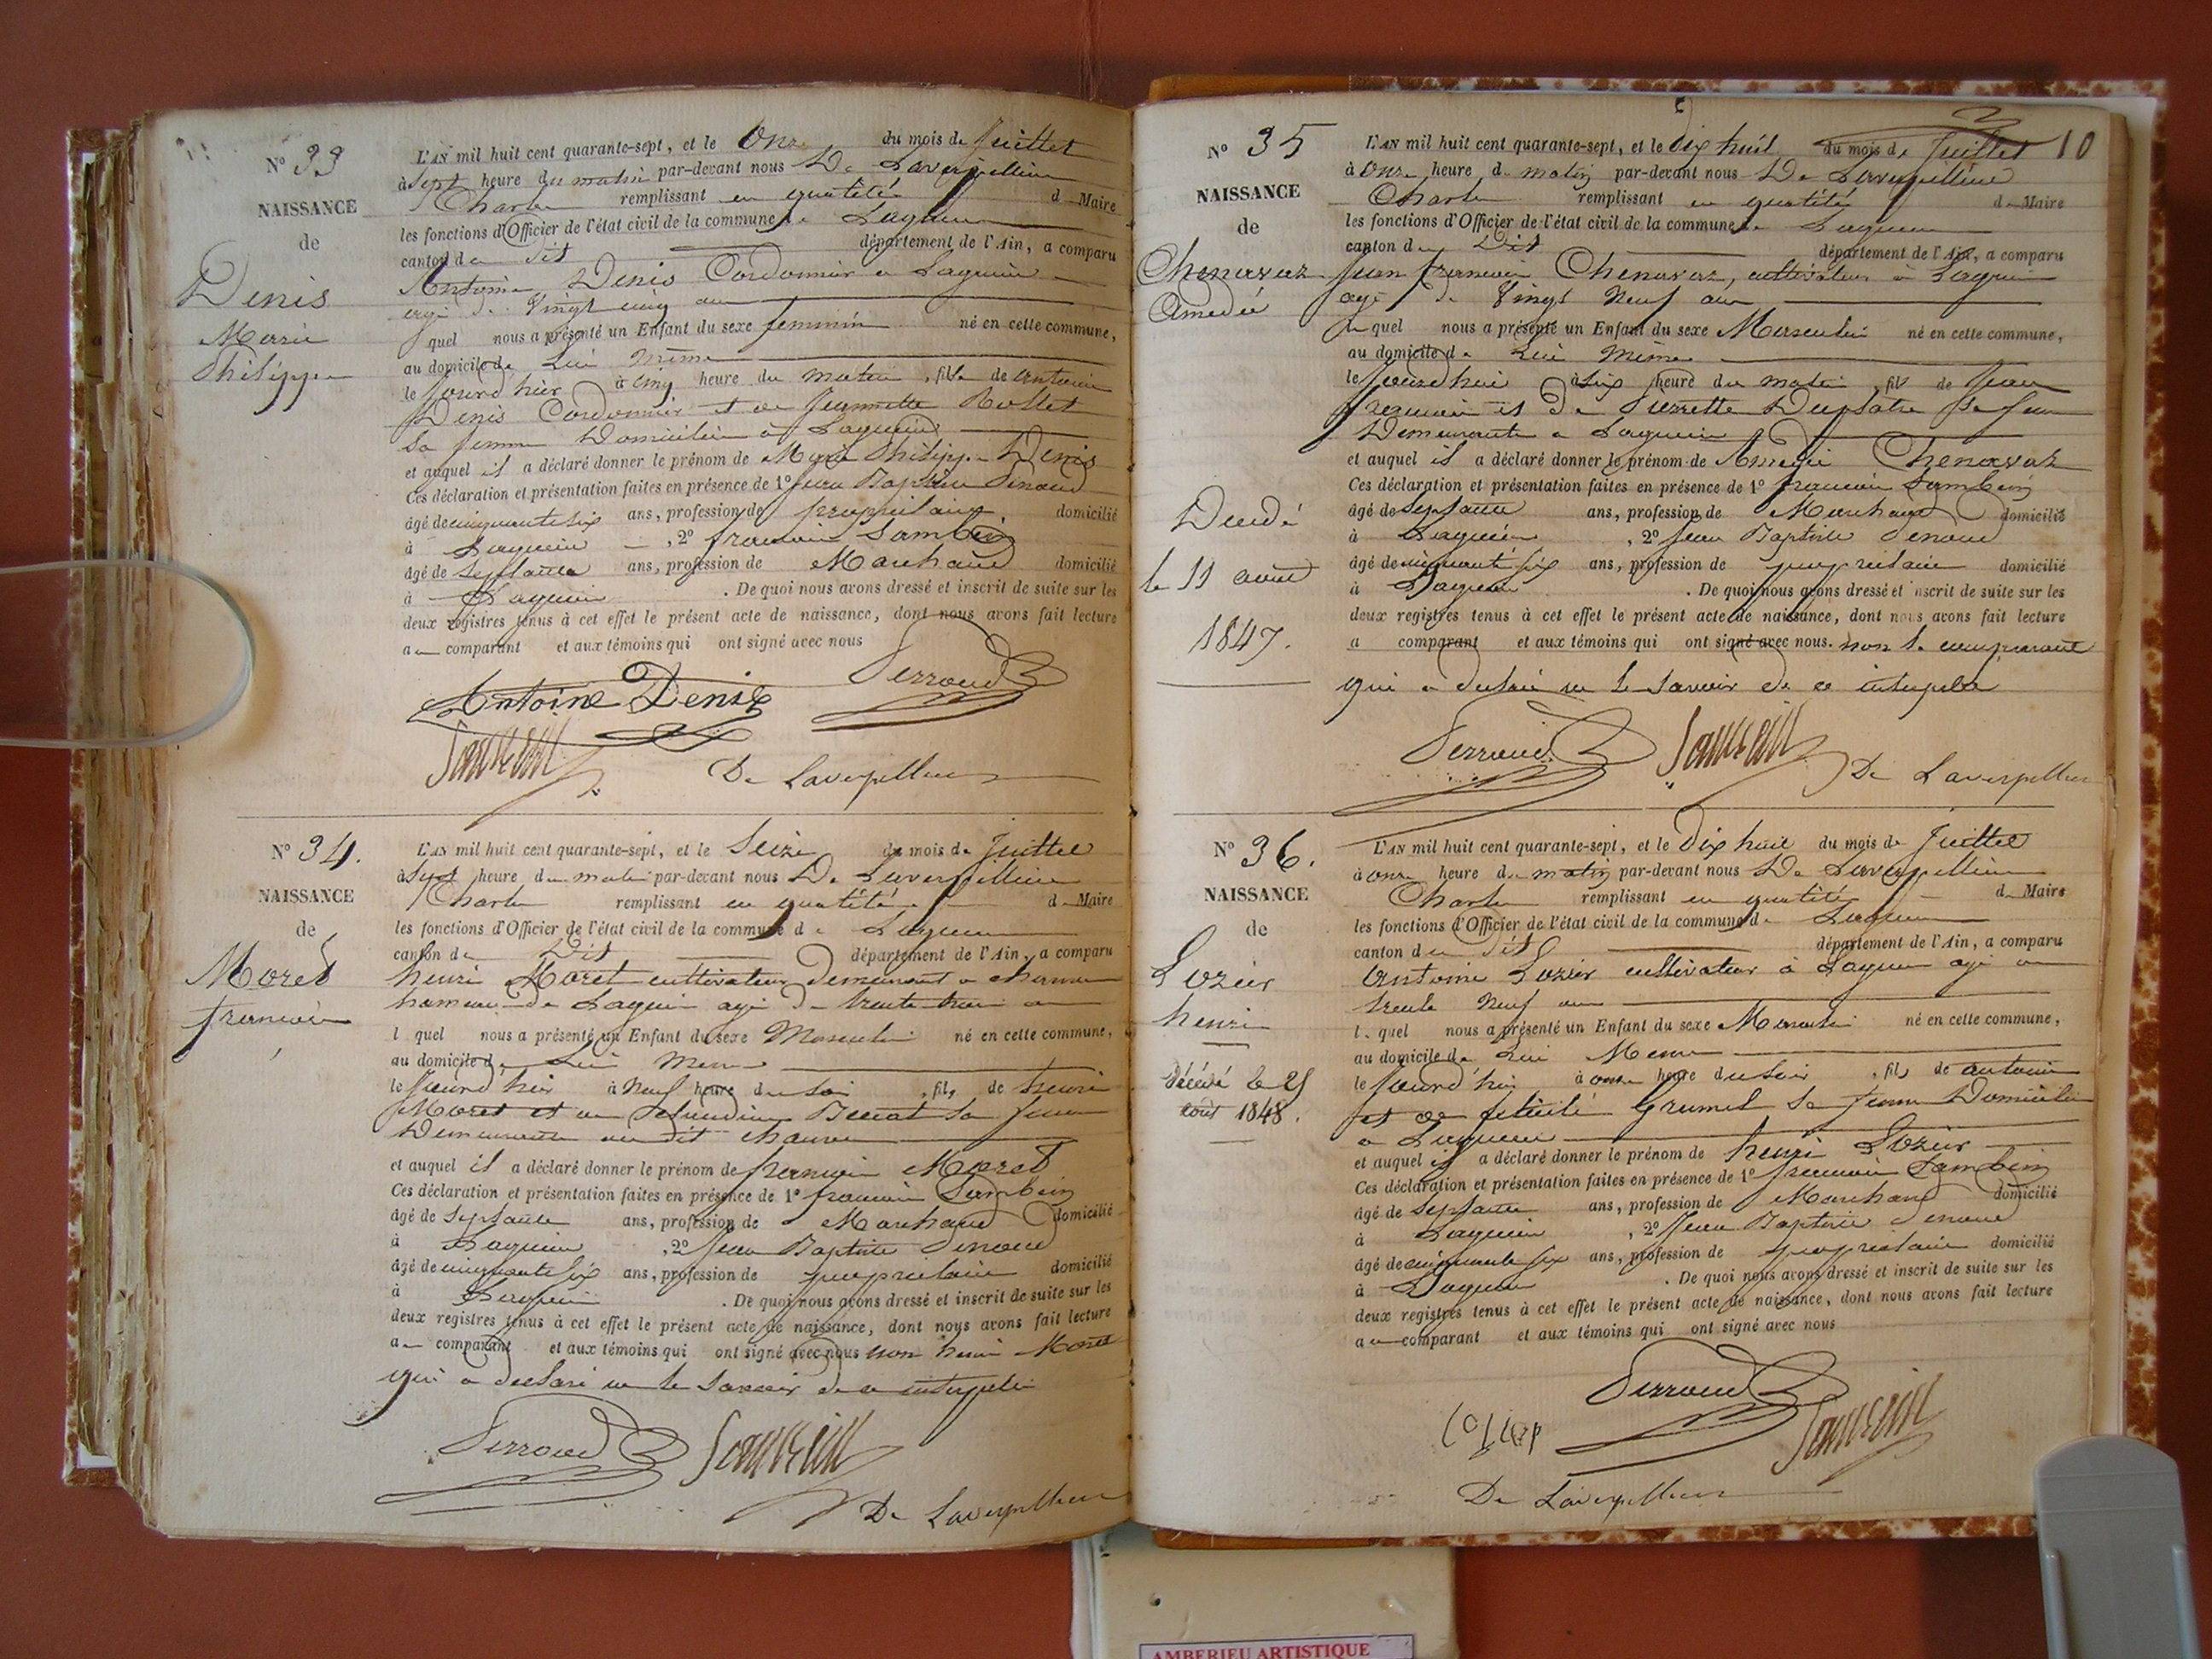 N° 33
NAISSANCE
de
Denis
Marie
Philippe
L'AN mil huit cent quarante-sept, et le Onze du mois de Juillet
à Sept heure du matin par-devant nous De Laverpillière
Charles remplissant en qualité de Maire
les fonctions d'Officier de l'état civil de la commune de Lagnieu
canton du dit département de l'Ain, a comparu
Antoine Denis Cordonnier a Lagnieu
agé de Vingt cinq ans
lequel nous a présenté un Enfant du sexe feminin né en cette commune,
au domicile de Lui même
le Jourd'hier à cinq heure du matin, fille de Antoine
Denis Cordonnier et de Jeannette Rollet
sa femme Domiciliée à Lagnieu
et auquel il a déclaré donner le prénom de Marie Philippe Denis
Ces déclaration et présentation faites en présence de 1° Jean Baptiste Penoud
âgé de cinquante six ans, profession de propriétaire domicilié
à Lagnieu, 2° françois Sambein
âgé de Septante ans, profession de Marchand domicilié
à Lagnieu. De quoi nous avons dressé et inscrit de suite sur les
deux registres tenus à cet effet le présent acte de naissance, dont nous avons fait lecture
au comparant et aux témoins qui ont signé avec nous
Antoine Denis
De Laverpillière
N° 34.
NAISSANCE
de
Moret
françois
L'AN mil huit cent quarante-sept, et le Seize du mois de Juillet
à Sept heure du matin par-devant nous De Laverpillière
Charles remplissant en qualité de Maire
les fonctions d'Officier de l'état civil de la commune de Lagnieu
canton du Dit département de l'Ain, a comparu
henri Moret cultivateur Demeurant a
hameau de Lagnieu agé de trente ans
lequel nous a présenté un Enfant du sexe Masculin né en cette commune,
au domicile de Lui même
le Jourd'hier à Neuf heure du soir, fils de henri
Moret et de sa femme
Demeurante au dit
et auquel il a déclaré donner le prénom de françois Moret
Ces déclaration et présentation faites en présence de 1° françois Sambein
âgé de Septante ans, profession de Marchand domicilié
à Lagnieu, 2° Jean Baptiste Penoud
âgé de cinquante six ans, profession de propriétaire domicilié
à Lagnieu. De quoi nous avons dressé et inscrit de suite sur les
deux registres tenus à cet effet le présent acte de naissance, dont nous avons fait lecture
au comparant et aux témoins qui ont signé avec nous non henri Moret
qui a declaré ne le savoir de ce interpelé
De Laverpillière
10
N° 35
NAISSANCE
de
Chenavaz
Amedée
Décédé
le 11 aout
1847.
L'AN mil huit cent quarante-sept, et le dix huit du mois de Juillet
à Onze heure du matin par-devant nous De Laverpillière
Charles remplissant en qualité de Maire
les fonctions d'Officier de l'état civil de la commune de Lagnieu
canton du Dit département de l'Ain, a comparu
Jean françois Chenavaz, cultivateur a Lagnieu
agé de Vingt Neuf ans
lequel nous a présenté un Enfant du sexe Masculin né en cette commune,
au domicile de Lui même
le Jourd'hui à six heure du matin, fils de Jean
françois et de Pierrette Duplatre sa femme
Demeurante a Lagnieu
et auquel il a déclaré donner le prénom de Amedée Chenavaz
Ces déclaration et présentation faites en présence de 1° françois Sambein
âgé de Septante ans, profession de Marchand domicilié
à Lagnieu, 2° Jean Baptiste Penoud
âgé de cinquante six ans, profession de propriétaire domicilié
à Lagnieu. De quoi nous avons dressé et inscrit de suite sur les
deux registres tenus à cet effet le présent acte de naissance, dont nous avons fait lecture
a comparant et aux témoins qui ont signé avec nous. non le comparant
qui a declaré ne le savoir de ce interpelé
De Laverpillière
N° 36.
NAISSANCE
de
Lozier
henri
Décédé le 25
août 1848.
L'AN mil huit cent quarante-sept, et le Dix huit du mois de Juillet
à onze heure du matin par-devant nous De Laverpillière
Charles remplissant en qualité de Maire
les fonctions d'Officier de l'état civil de la commune de Lagnieu
canton du dit département de l'Ain, a comparu
Antoine Lozier cultivateur à Lagnieu agé de
trente Neuf ans
lequel nous a présenté un Enfant du sexe Masculin né en cette commune,
au domicile de Lui Meme
le Jourd'hier à onze heure du soir, fils de antoine
et de felicité Grumel sa femme Domiciliée
a Lagnieu
et auquel il a déclaré donner le prénom de henri Lozier
Ces déclaration et présentation faites en présence de 1° françois Sambein
âgé de Septante ans, profession de Marchand domicilié
à Lagnieu, 2° Jean Baptiste Penoud
âgé de cinquante six ans, profession de propriétaire domicilié
à Lagnieu. De quoi nous avons dressé et inscrit de suite sur les
deux registres tenus à cet effet le présent acte de naissance, dont nous avons fait lecture
au comparant et aux témoins qui ont signé avec nous
De Laverpillière
AMBERIEU ARTISTIQUE